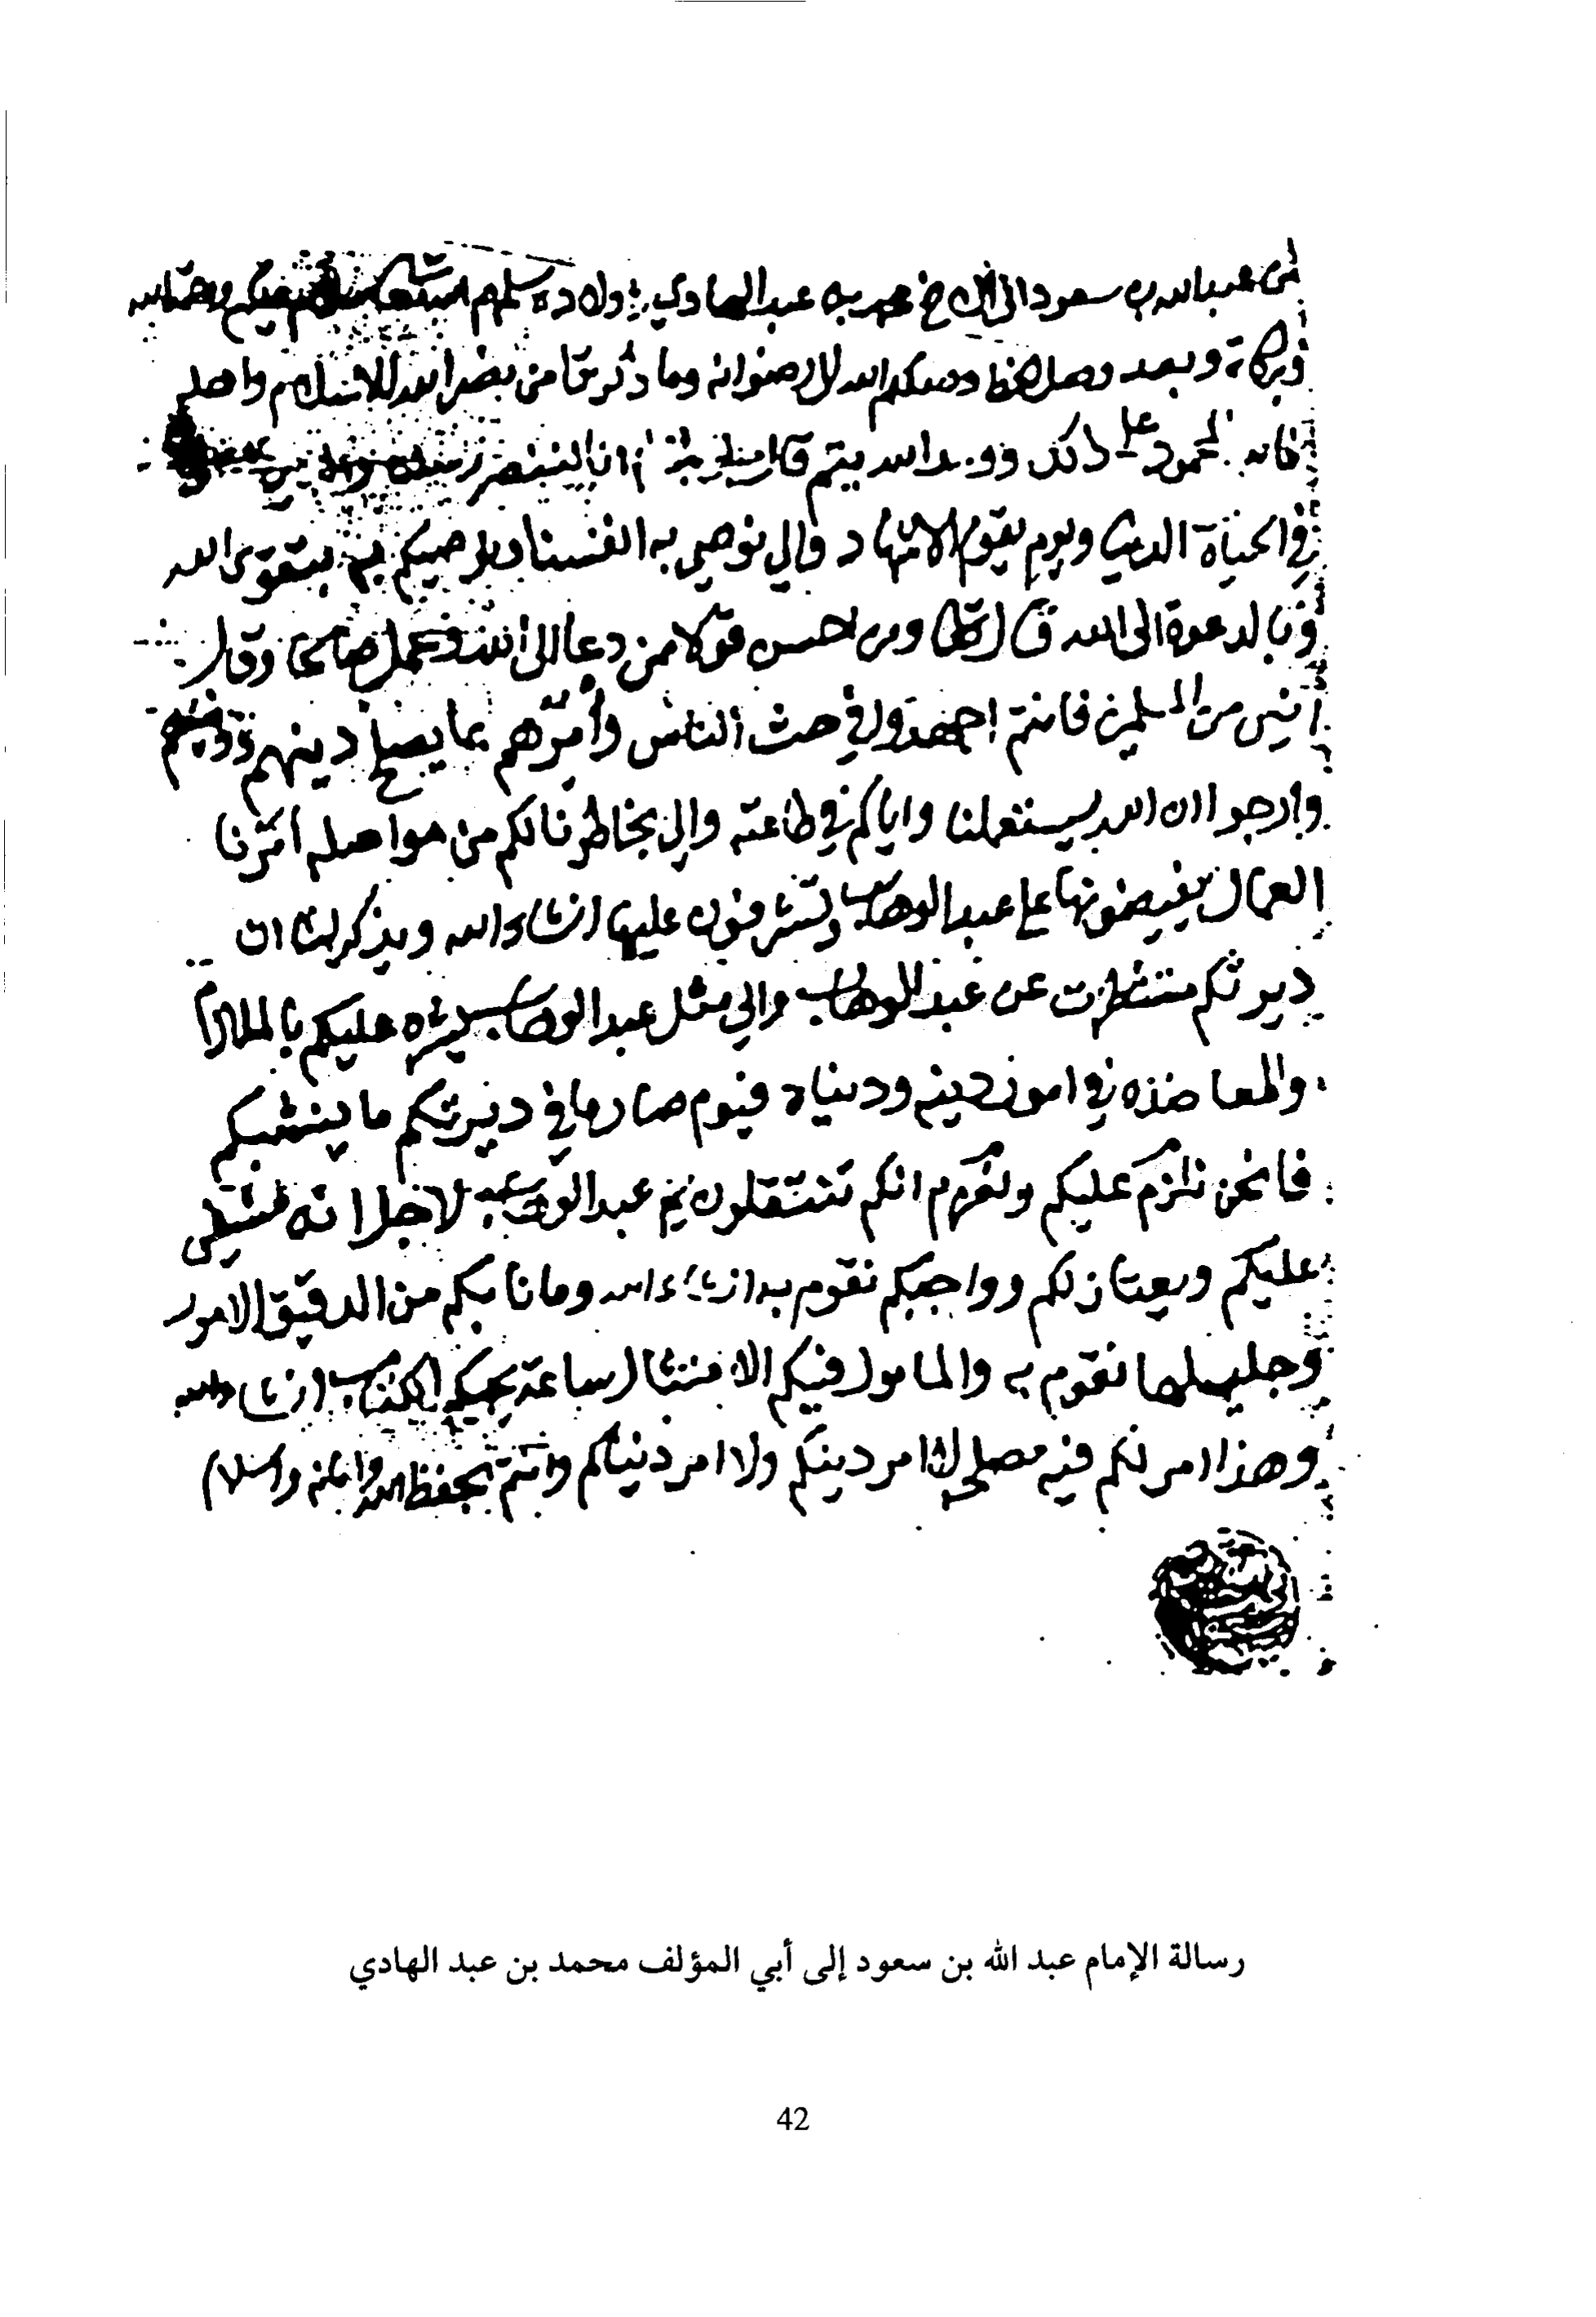 من عبدالله بن سعود الى الاخ محمد بن عبد الهادي واولاده سلمهم الله تعالى سلام عليكم ورحمة الله
وبركاته وبعد وصل الخط وصلكم الله الى رضوانه وما ذكرتوا من نصر الله للاسلام واهله
فالله المحمود على ذلك ووعد الله يتم قال انا لننصر رسلنا والذين امنوا
في الحياة الدنيا ويوم يقوم الاشهاد والي نوصي به انفسنا ونوصيكم به بتقوى الله
وبالدعوة الى الله قال تعالى ومن احسن قولا من دعا الى الله وعمل صالحا وقال
انني من المسلمين فانتم اجتهدوا في حث الناس وأمرهم بما يصلح دينهم
وارجوا ان الله يستعملنا واياكم في طاعته والي بخاطرنا لكم من مواصله أمرنا
العمال يفيضونها على عبد الوهاب وتشرفون عليها ان شاء الله ويذكر لنا ان
ديرتكم منتظرت عن عبد الوهاب والي مثل عبد الوهاب عليكم بالملازم
والمعاضده في امور دينه ودنياه فيوم صار ما في ديرتكم ما ينشبكم
فانحن نلزم عليكم انكم تنتقلون يم عبد الوهاب لاجل انه
عليكم ويعتاز لكم وواجبكم نقوم به ان شاء الله وما نابكم من الدقيق الامور
وجليلها نقوم به والمامول فيكم الامتثال ساعة يجيكم الكتاب ان شاء الله
وهذا امر لكم فيه مصلح لامر دينكم ولا امر دنياكم وانتم بحفظ الله وامانه والسلام
رسالة الإمام عبد الله بن سعود إلى أبي المؤلف محمد بن عبد الهادي
42